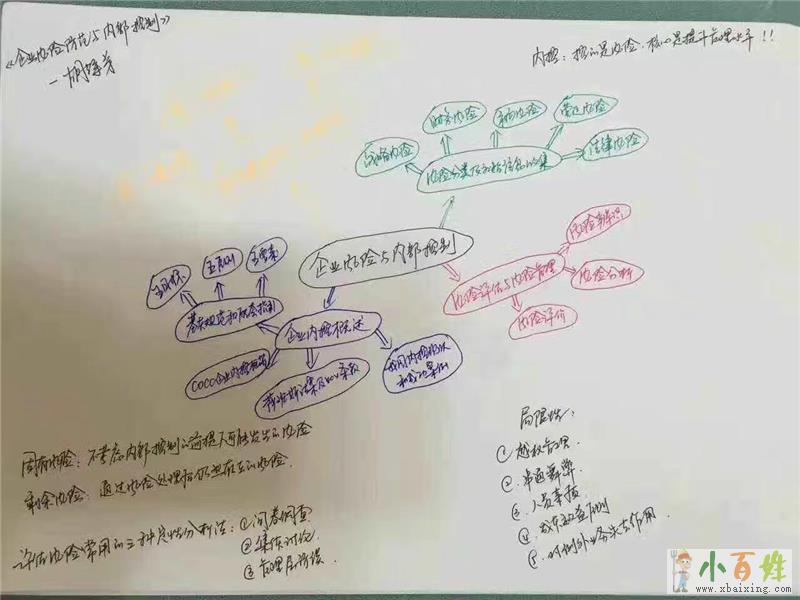 《企业风险防范与内部控制》
内控：控的是风险，核心是提升管理水平！！
财务风险
市场风险
营运风险
战略风险
风险分类及初始信息收集
法律风险
企业风险与内部控制
风险辨识
风险评估与风险管理
风险分析
风险评价
五目标
五原则
五要素
基本规范和配套指引
企业内控概述
COCO企业内控框架
我国内控现状
固有风险：不考虑内部控制的前提下可能发生的风险
剩余风险：通过风险处理后仍旧存在的风险
评估风险常用的三种定性分析法：①问卷调查
②集体讨论
③管理层访谈
局限性：
①越权管理
②串通舞弊
③人员素质
④成本效益原则
⑤对例外业务失去作用
小百姓
www.xbaixing.com